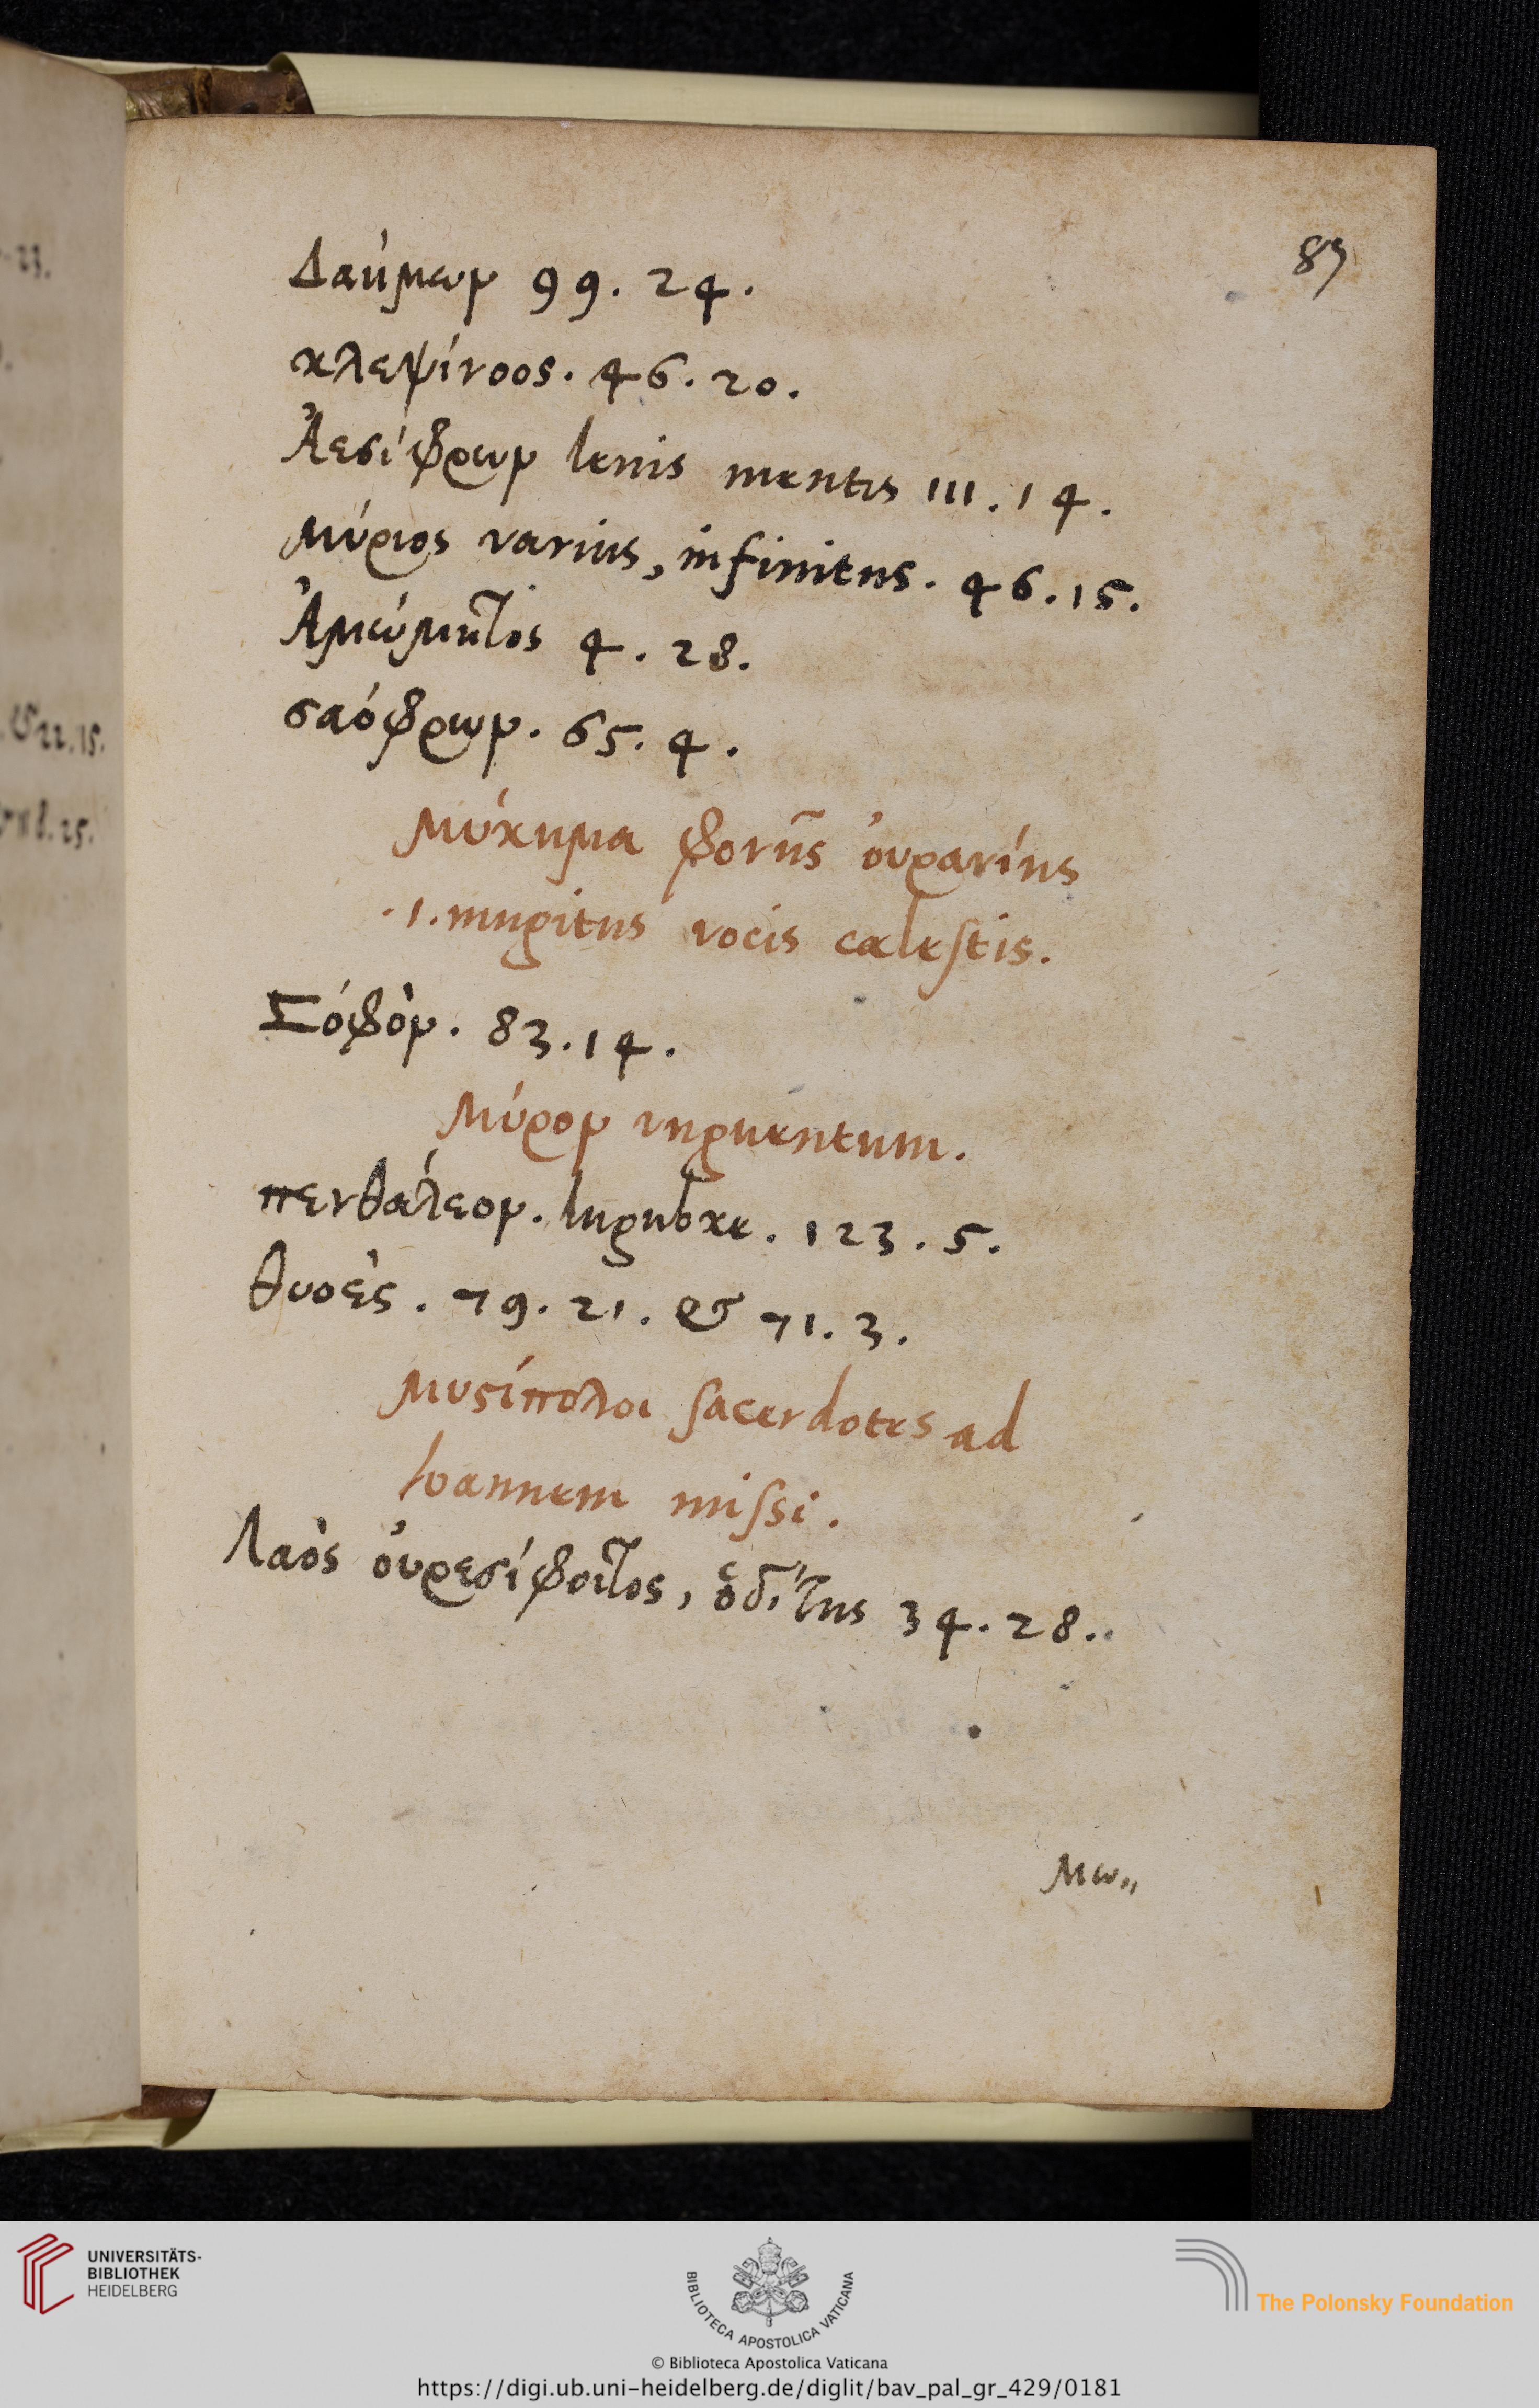 87
Δαήμων 99. 24.
κλεψίνοος. 46. 20.
Ἀεσίφρων lenis mentis 111. 14.
Μύριος varius, infinitus. 46. 15.
Ἀμώμητος 4. 28.
σαόφρων. 65. 4.
Μύκημα φονῆς ὀυρανίης
.i. mugitus vocis cælestis.
Σόφὸν. 83. 14.
Μύρον unguentum.
πενθαλέον. lugubre. 123. 5.
θυοὲς. 79. 21. & 71. 3.
Μυστίπολοι sacerdotes ad
Ioannem missi.
Λαὸς ὀυρεσίφοιτος, ὁδίτης 34. 28.
Μω,,
23.
& 22. 15.
8. 25.
UNIVERSITÄTS-
BIBLIOTHEK
HEIDELBERG
BIBLIOTECA APOSTOLICA VATICANA
The Polonsky Foundation
© Biblioteca Apostolica Vaticana
https://digi.ub.uni-heidelberg.de/diglit/bav_pal_gr_429/0181